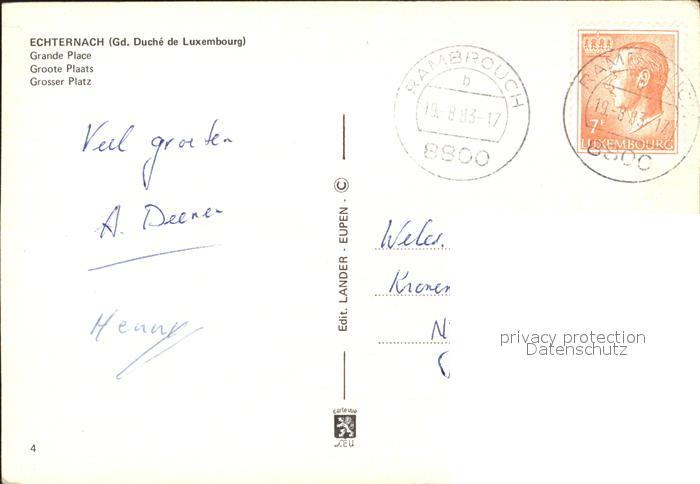 ECHTERNACH (Gd. Duché de Luxembourg)
Grande Place
Groote Plaats
Grosser Platz
RAMBROUCH
b
19.-8.83-17
8800
RAMBROUCH
19.-8.83-17
8800
7F
LUXEMBOURG
Veel groeten
A. Deenen
Henny
Edit. LANDER - EUPEN - ©
N
privacy protection
Datenschutz
carte vue
4